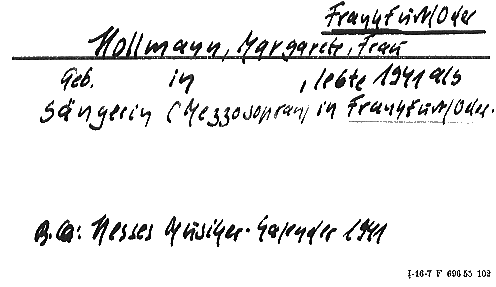 Frankfurt/Oder
Hollmann, Margarete, Frau
Geb. in , lebte 1941 als
Sängerin (Mezzosopran) in Frankfurt/Oder.
Hesses Musiker-Kalender 1941
I-16-7 F 696 55 102